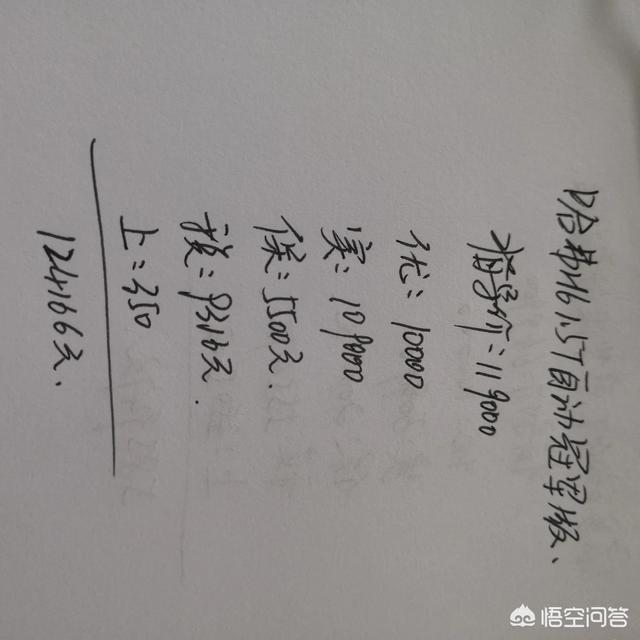 哈弗H6 1.5T自动冠军版、
指导价：119000
优：10000
实：109000
保：5500元.
税：9316元.
上：350
124166元.
悟空问答